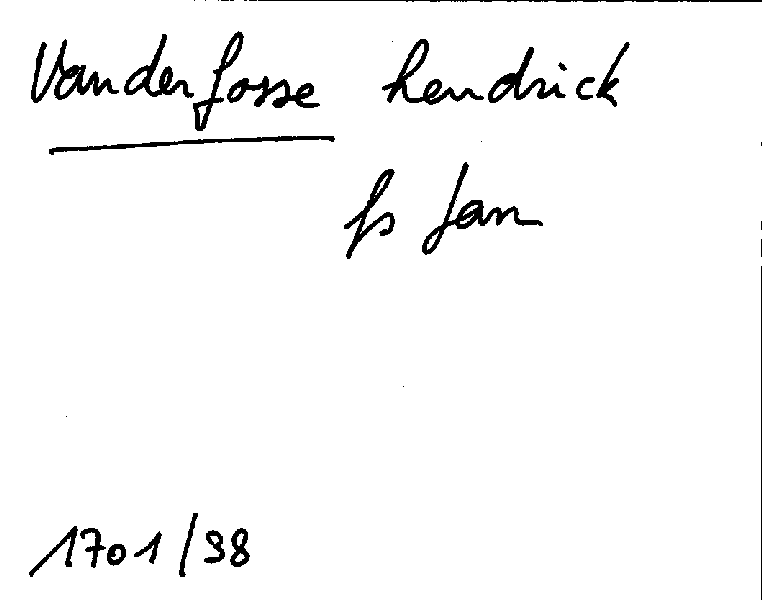 Vanderfosse hendrick
fs Jan
1701/98